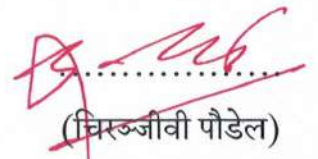 ....................
(चिरञ्जीवी पौडेल)